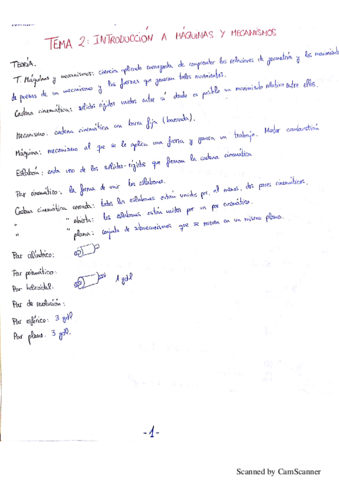 TEMA 2: INTRODUCCIÓN A MÁQUINAS Y MECANISMOS
TEORÍA.
T. Máquinas y mecanismos: ciencia aplicada encargada de comprender las relaciones de geometría y los movimientos
de piezas de un mecanismo y las fuerzas que generan estos movimientos.
Cadena cinemática: sólidos rígidos unidos entre sí donde es posible un movimiento relativo entre ellos.
Mecanismo: cadena cinemática con barra fija (bancada).
Máquina: mecanismo al que se le aplica una fuerza y genera un trabajo. Motor combustión
Eslabón: cada uno de los sólidos rígidos que forman la cadena cinemática
Par cinemático: la forma de unir los eslabones.
Cadena cinemática cerrada: todos los eslabones están unidos por, al menos, dos pares cinemáticos.
" " abierta: los eslabones están unidos por un par cinemático.
" " plana: conjunto de mecanismos que se mueven en un mismo plano.
Par cilíndrico:
Par prismático:
Par helicoidal: 1 gdl
Par de revolución:
Par esférico: 3 gdl
Par plano: 3 gdl.
-1-
Scanned by CamScanner